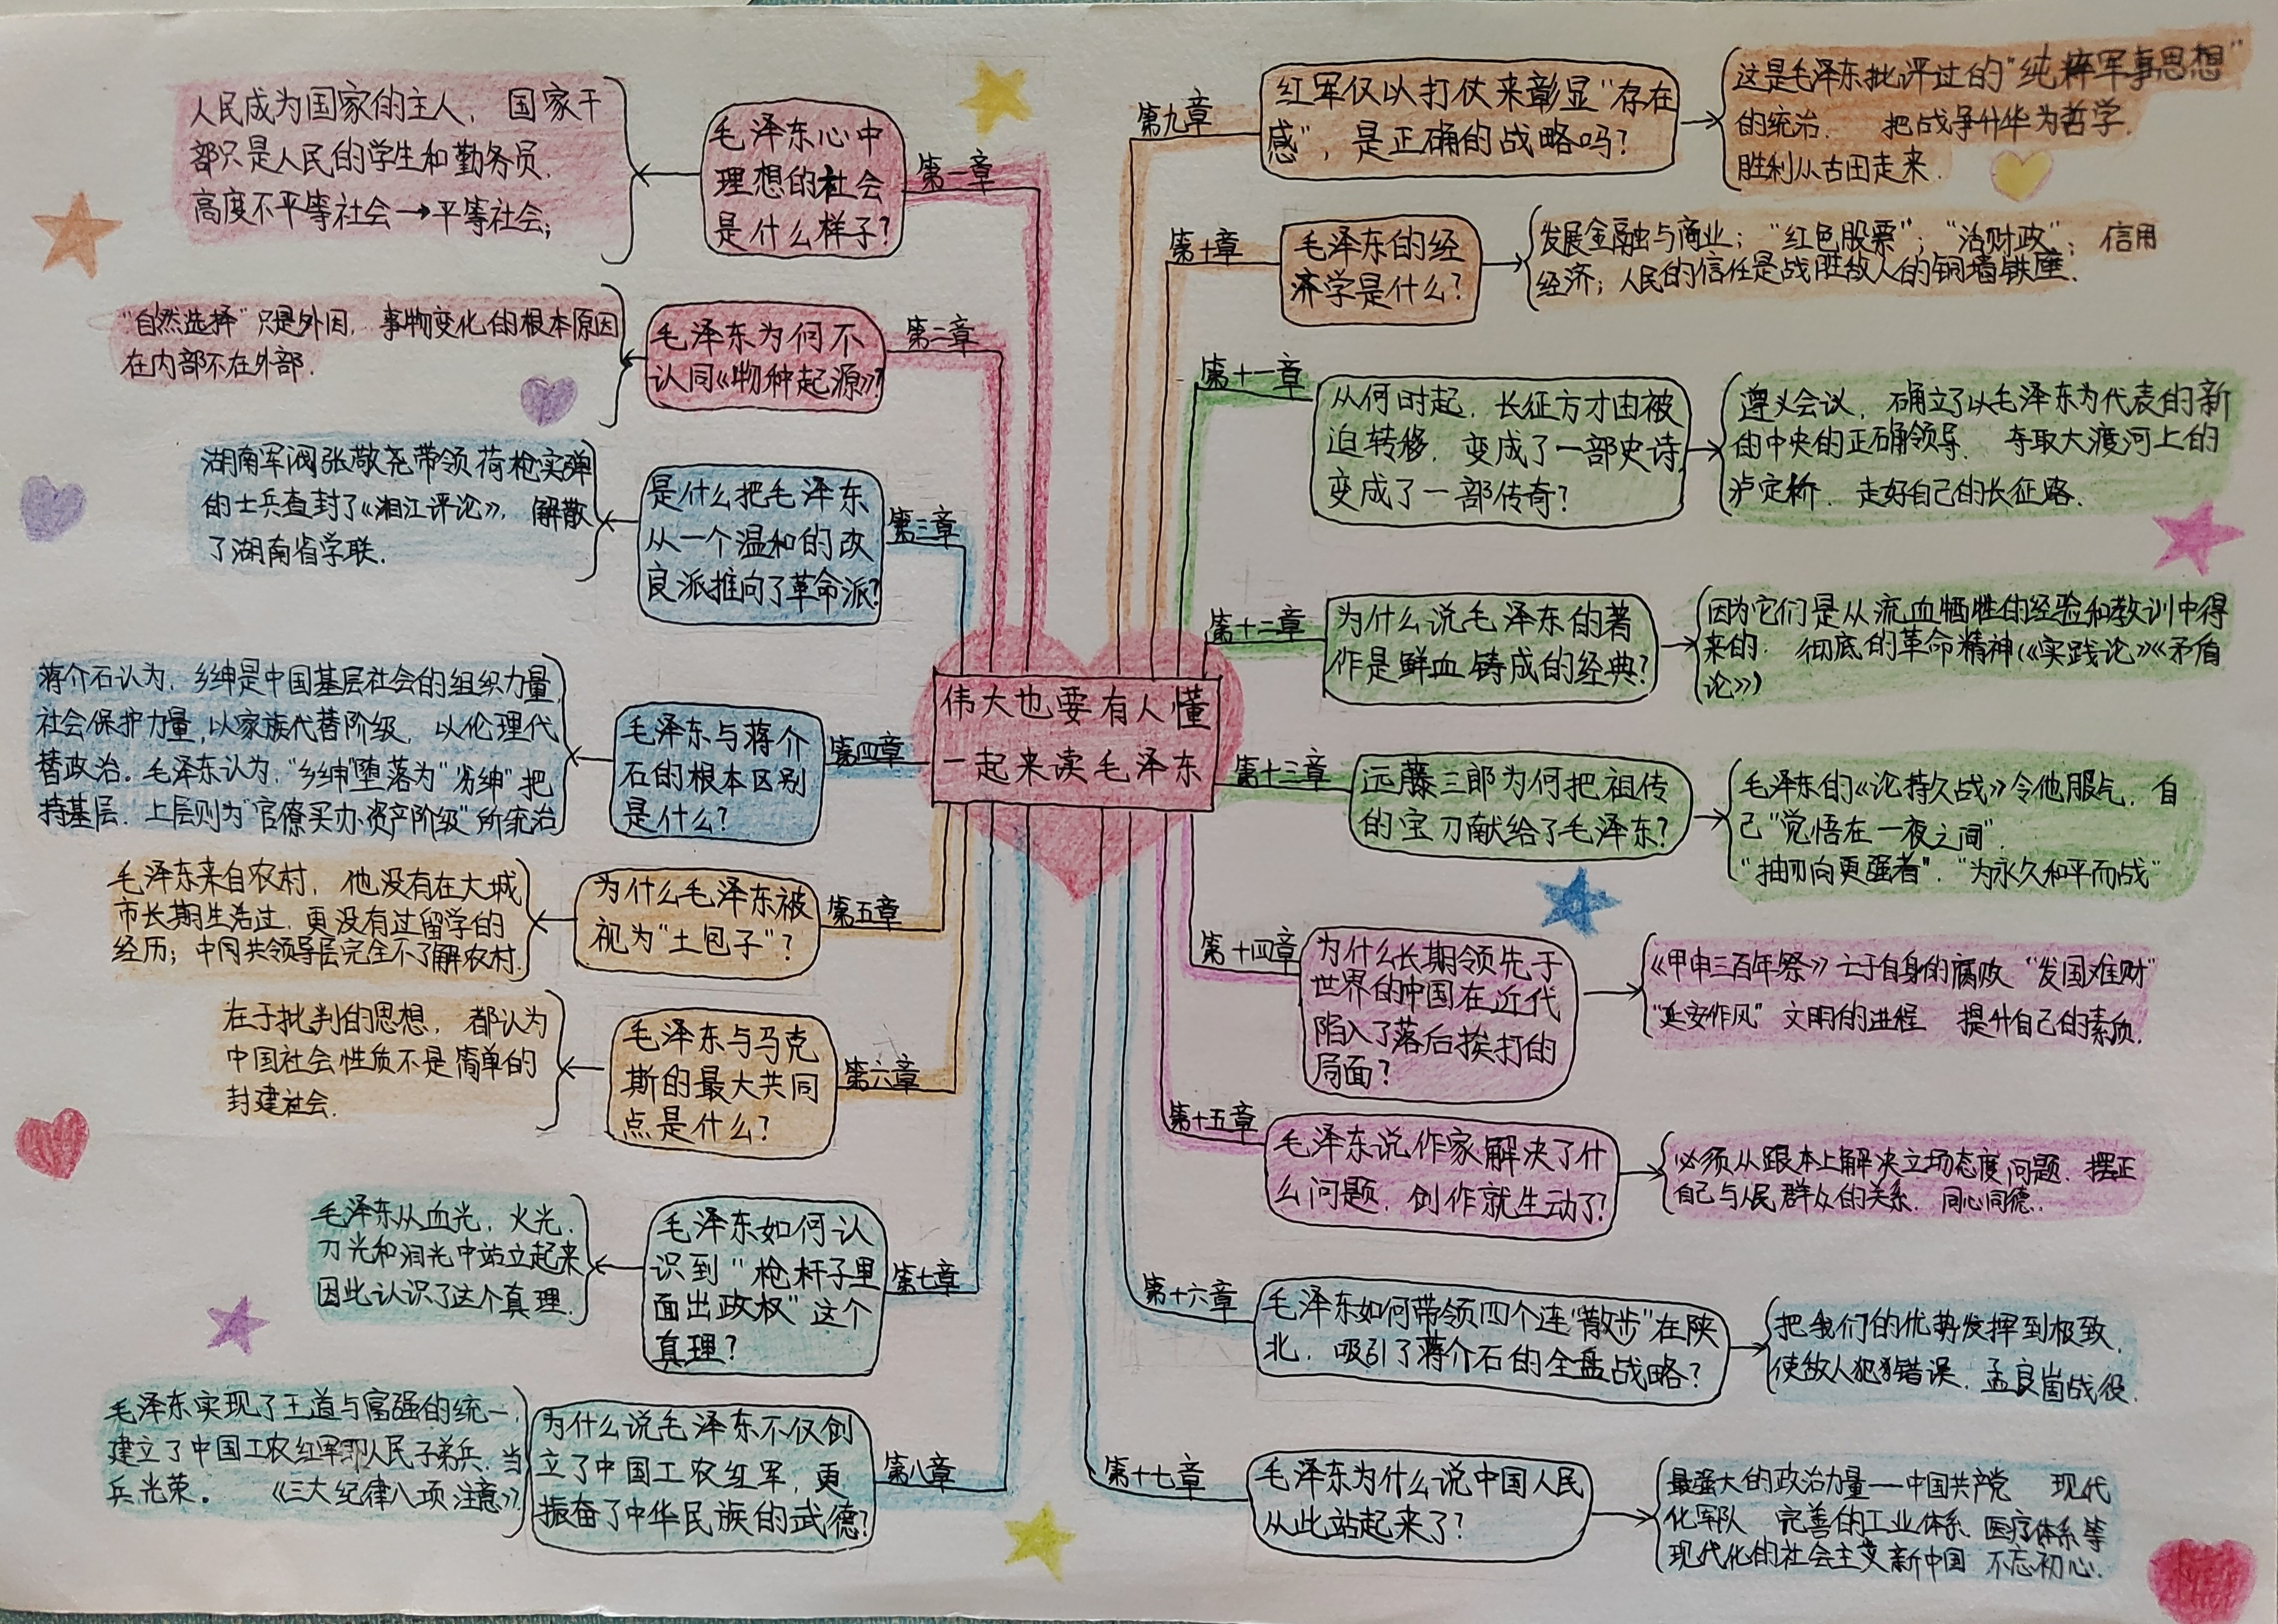 伟大也要有人懂
一起来读毛泽东
第一章
毛泽东心中
理想的社会
是什么样子?
人民成为国家的主人, 国家干
部只是人民的学生和勤务员.
高度不平等社会→平等社会;
第二章
毛泽东为何不
认同《物种起源》?
"自然选择"只是外因, 事物变化的根本原因
在内部不在外部.
第三章
是什么把毛泽东
从一个温和的改
良派推向了革命派?
湖南军阀张敬尧带领荷枪实弹
的士兵查封了《湘江评论》, 解散
了湖南省学联.
第四章
毛泽东与蒋介
石的根本区别
是什么?
蒋介石认为, 乡绅是中国基层社会的组织力量,
社会保护力量, 以家族代替阶级, 以伦理代
替政治。毛泽东认为, "乡绅"堕落为"劣绅"把
持基层, 上层则为"官僚买办资产阶级"所统治
第五章
为什么毛泽东被
视为"土包子"?
毛泽东来自农村, 他没有在大城
市长期生活过, 更没有过留学的
经历; 中共领导层完全不了解农村.
第六章
毛泽东与马克
斯的最大共同
点是什么?
在于批判的思想, 都认为
中国社会性质不是简单的
封建社会.
第七章
毛泽东如何认
识到"枪杆子里
面出政权"这个
真理?
毛泽东从血光, 火光,
刀光和泪光中站立起来
因此认识了这个真理.
第八章
为什么说毛泽东不仅创
立了中国工农红军, 更
振奋了中华民族的武德?
毛泽东实现了王道与富强的统一,
建立了中国工农红军即人民子弟兵, 当
兵光荣。 《三大纪律八项注意》
第九章
红军仅以打仗来彰显"存在
感", 是正确的战略吗?
这是毛泽东批评过的"纯粹军事思想"
的统治. 把战争升华为哲学.
胜利从古田走来.
第十章
毛泽东的经
济学是什么?
发展金融与商业; "红色股票"; "活财政"; 信用
经济; 人民的信任是战胜敌人的铜墙铁壁.
第十一章
从何时起, 长征方才由被
迫转移, 变成了一部史诗,
变成了一部传奇?
遵义会议, 确立了以毛泽东为代表的新
的中央的正确领导. 夺取大渡河上的
泸定桥. 走好自己的长征路.
第十二章
为什么说毛泽东的著
作是鲜血铸成的经典?
因为它们是从流血牺牲的经验和教训中得
来的. 彻底的革命精神(《实践论》《矛盾
论》)
第十三章
远藤三郎为何把祖传
的宝刀献给了毛泽东?
毛泽东的《论持久战》令他服气, 自
己"觉悟在一夜之间"
"抽刀向更强者". "为永久和平而战"
第十四章
为什么长期领先于
世界的中国在近代
陷入了落后挨打的
局面?
《甲申三百年祭》亡于自身的腐败 "发国难财"
"延安作风" 文明的进程 提升自己的素质.
第十五章
毛泽东说作家解决了什
么问题, 创作就生动了?
必须从跟本上解决立场态度问题. 摆正
自己与人民群众的关系. 同心同德.
第十六章
毛泽东如何带领四个连"散步"在陕
北, 吸引了蒋介石的全盘战略?
把我们的优势发挥到极致,
使敌人犯错误. 孟良崮战役.
第十七章
毛泽东为什么说中国人民
从此站起来了?
最强大的政治力量——中国共产党 现代
化军队 完善的工业体系、医疗体系等
现代化的社会主义新中国 不忘初心.